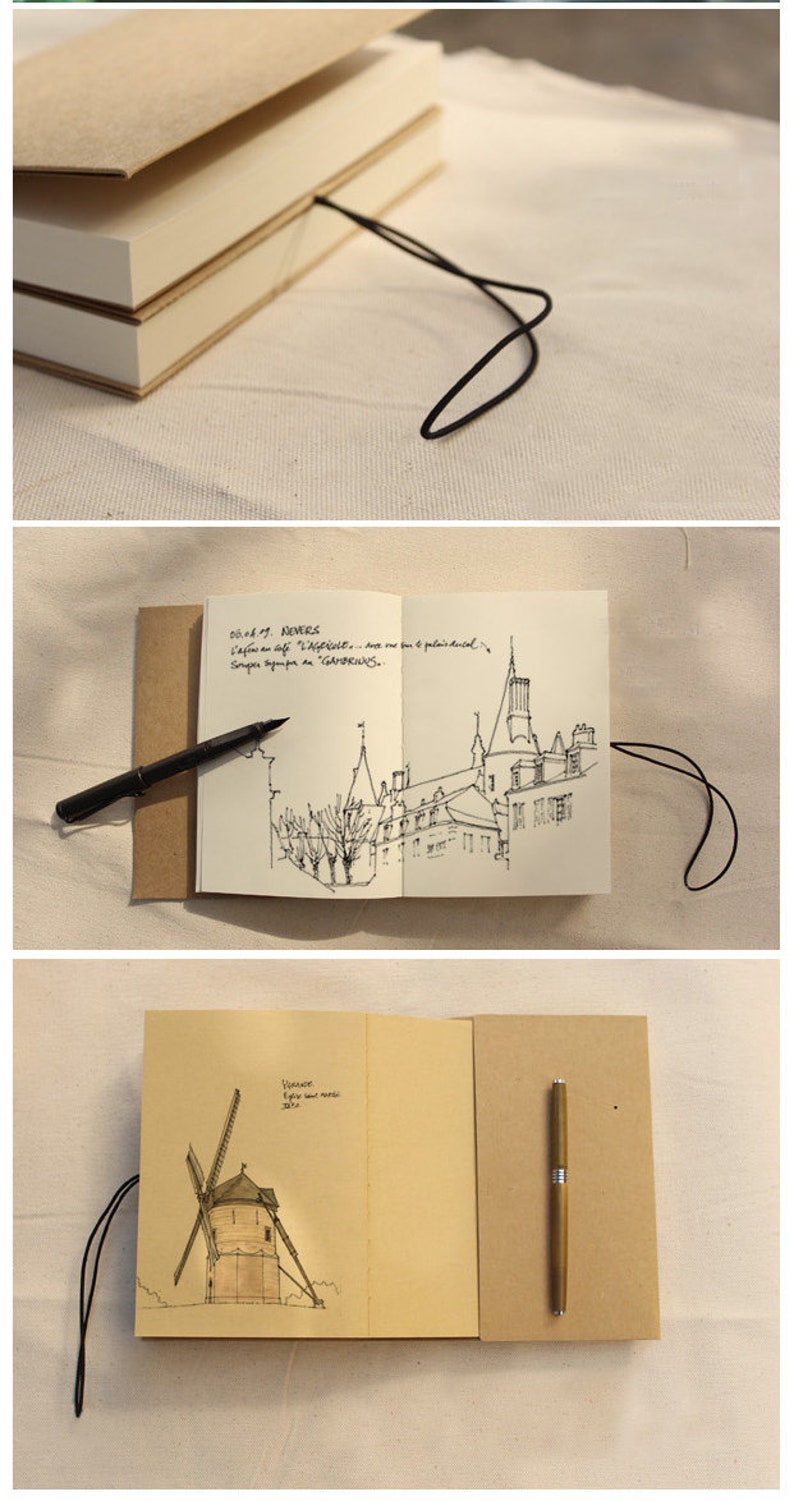 06.04.19. NEVERS
L'apéro au café "L'AGRICOLE"... avec vue sur le palais ducal
Souper sympa au "GAMBRINUS".
Eglise Saint